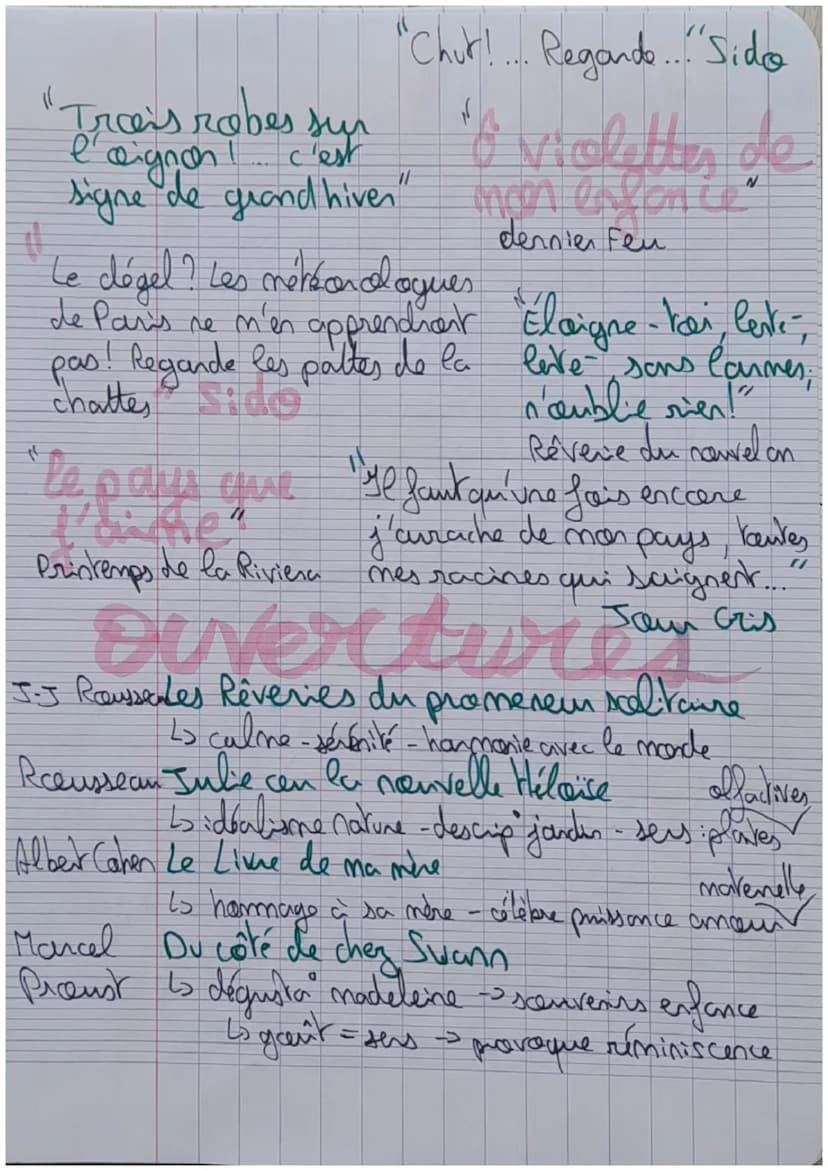 "Chut!... Regarde..." Sido
"Trois robes sur
l'oignon! ... c'est
signe de grand hiver"
"Ô violettes de
mon enfance"
dernier Feu
"Le dégel? Les météorologues
de Paris ne m'en apprendront
pas! Regarde les pattes de la
chattes" Sido
"Éloigne-toi, lente-,
lente-, sans larmes;
n'oublie rien!"
Rêverie du nouvel an
"le pays que
j'aime"
Printemps de la Riviera
"Il faut qu'une fois encore
j'arrache de mon pays, toutes
mes racines qui saignent..."
Jour Gris
ouvertures
J-J Rousseau Les Rêveries du promeneur solitaire
↳ calme - sérénité - harmonie avec le monde
Rousseau Julie ou la nouvelle Héloïse
↳ idéalisme nature - descrip° jardin - sens : plantes olfactives
Albert Cohen Le Livre de ma mère
↳ hommage à sa mère - célèbre puissance amour maternelle
Marcel Proust Du côté de chez Swann
↳ dégusta° madeleine → souvenirs enfance
↳ goût = sens → provoque réminiscence